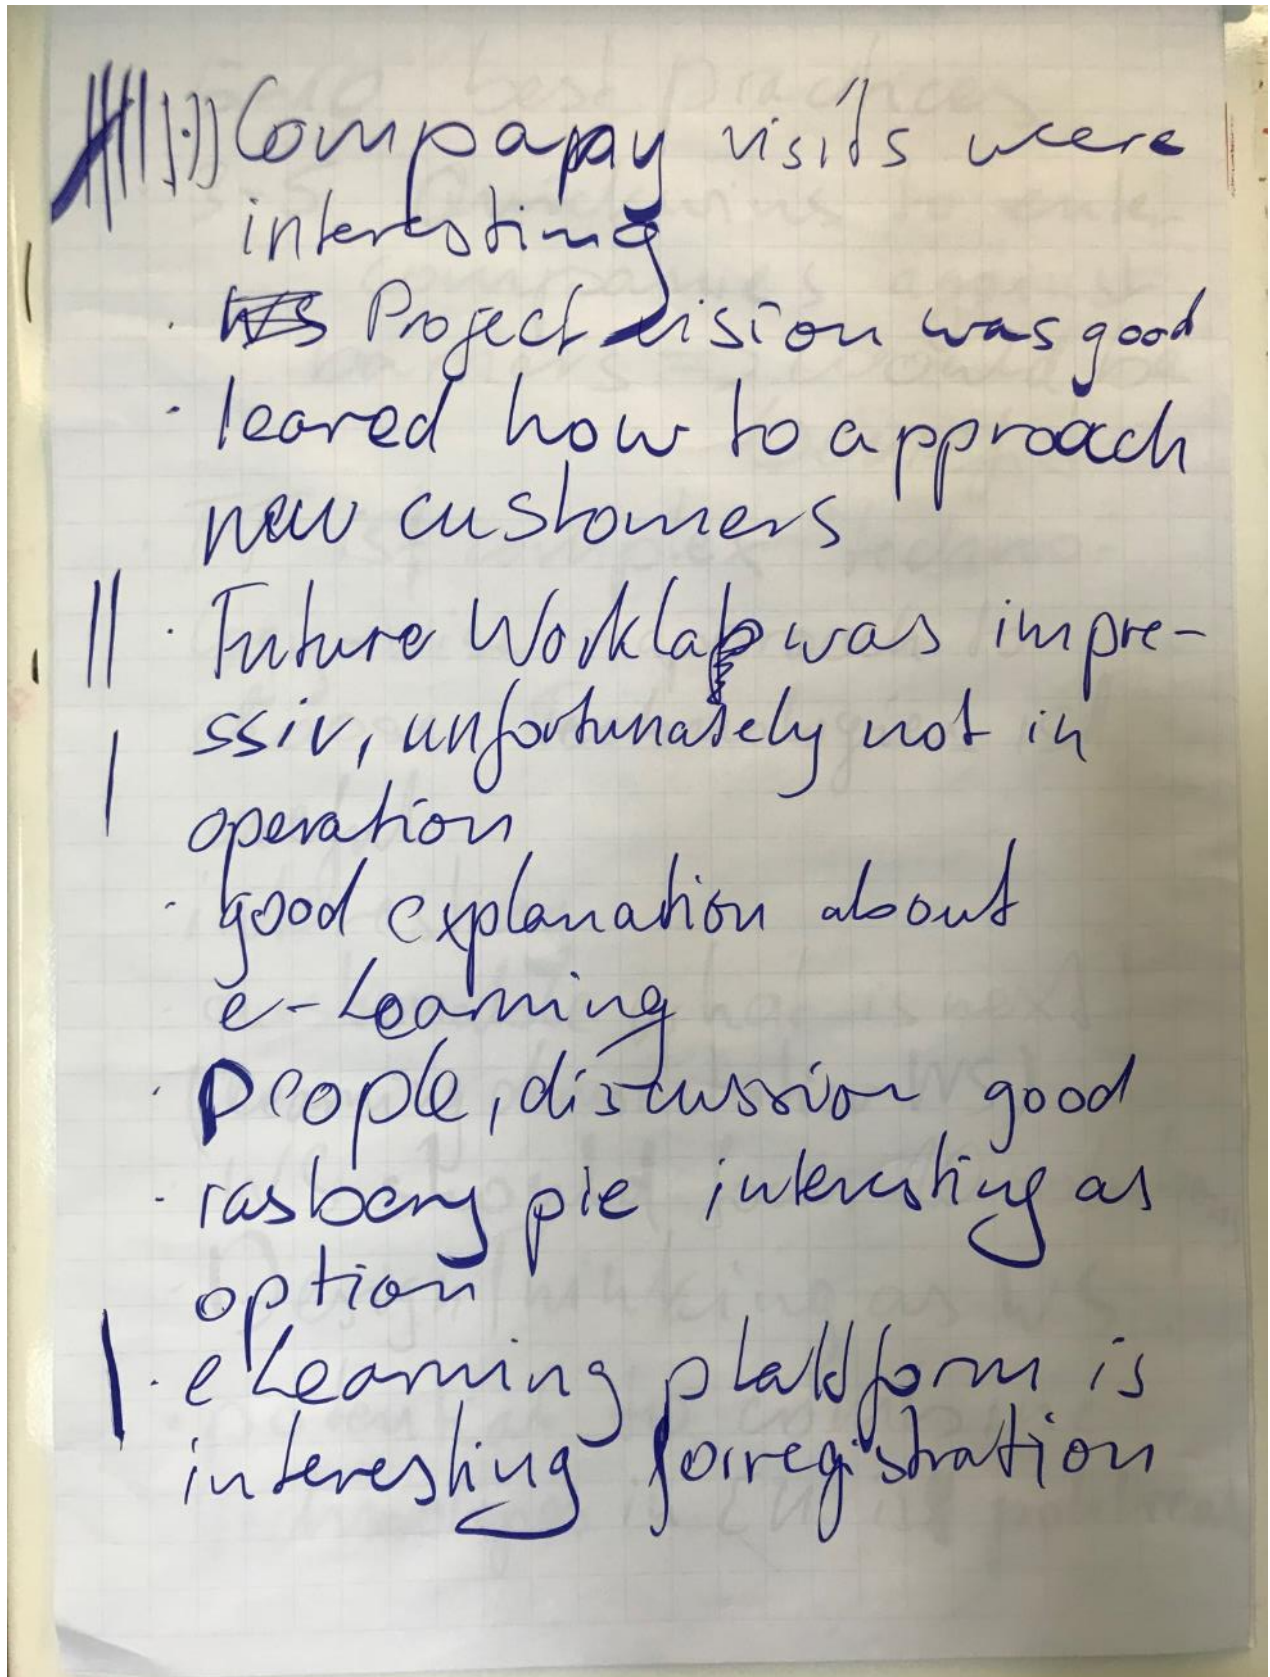 Company visits were
interesting
· WS Project vision was good
· leared how to approach
new customers
· Future Worklab was impre-
ssiv, unfortunately not in
operation
· good explanation about
e-Learning
· People, discussion good
· rasbery pie interesting as
option
· eLearning platform is
interesting for registration